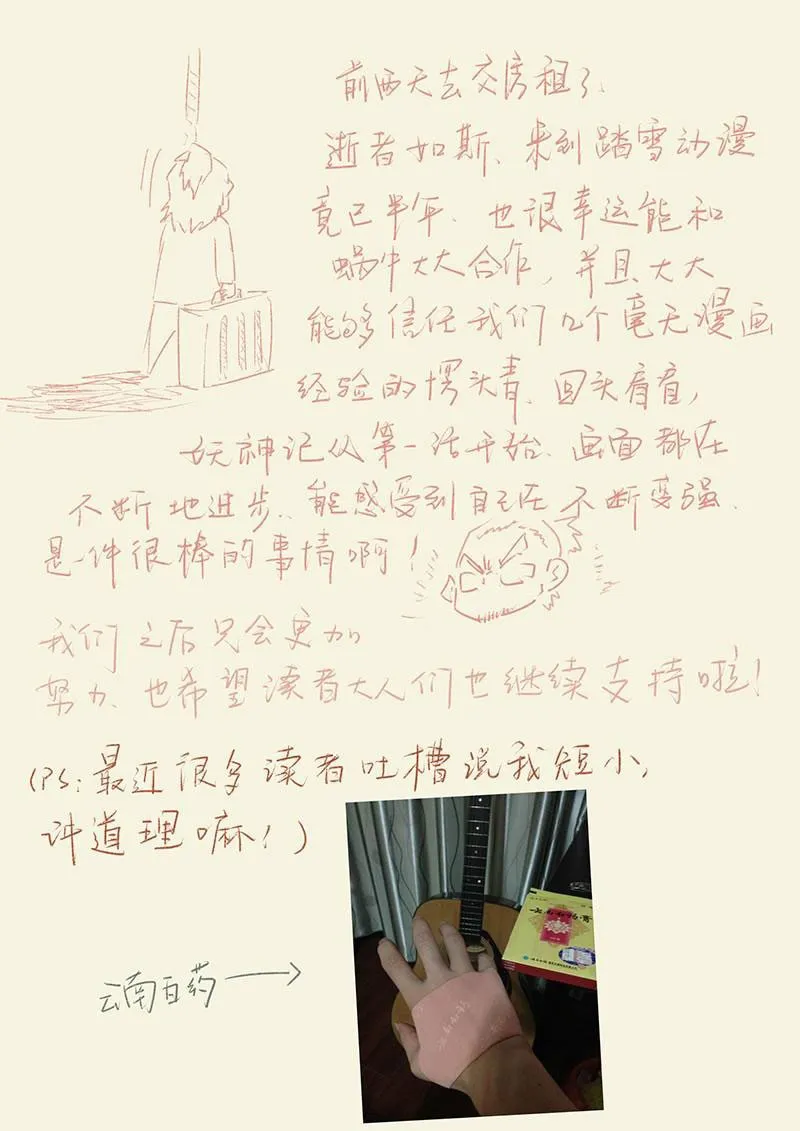 前两天去交房租了、
逝者如斯、来到踏雪动漫
竟已半年、也很幸运能和
蜗牛大大合作，并且大大
能够信任我们几个毫无漫画
经验的愣头青、回头看看，
妖神记从第一话开始、画面都在
不断地进步、能感受到自己在不断变强、
是一件很棒的事情啊！
我们之后只会更加
努力、也希望读者大人们也继续支持啦！
(PS:最近很多读者吐槽说我短小，
讲道理嘛！)
云南白药膏
云南白药